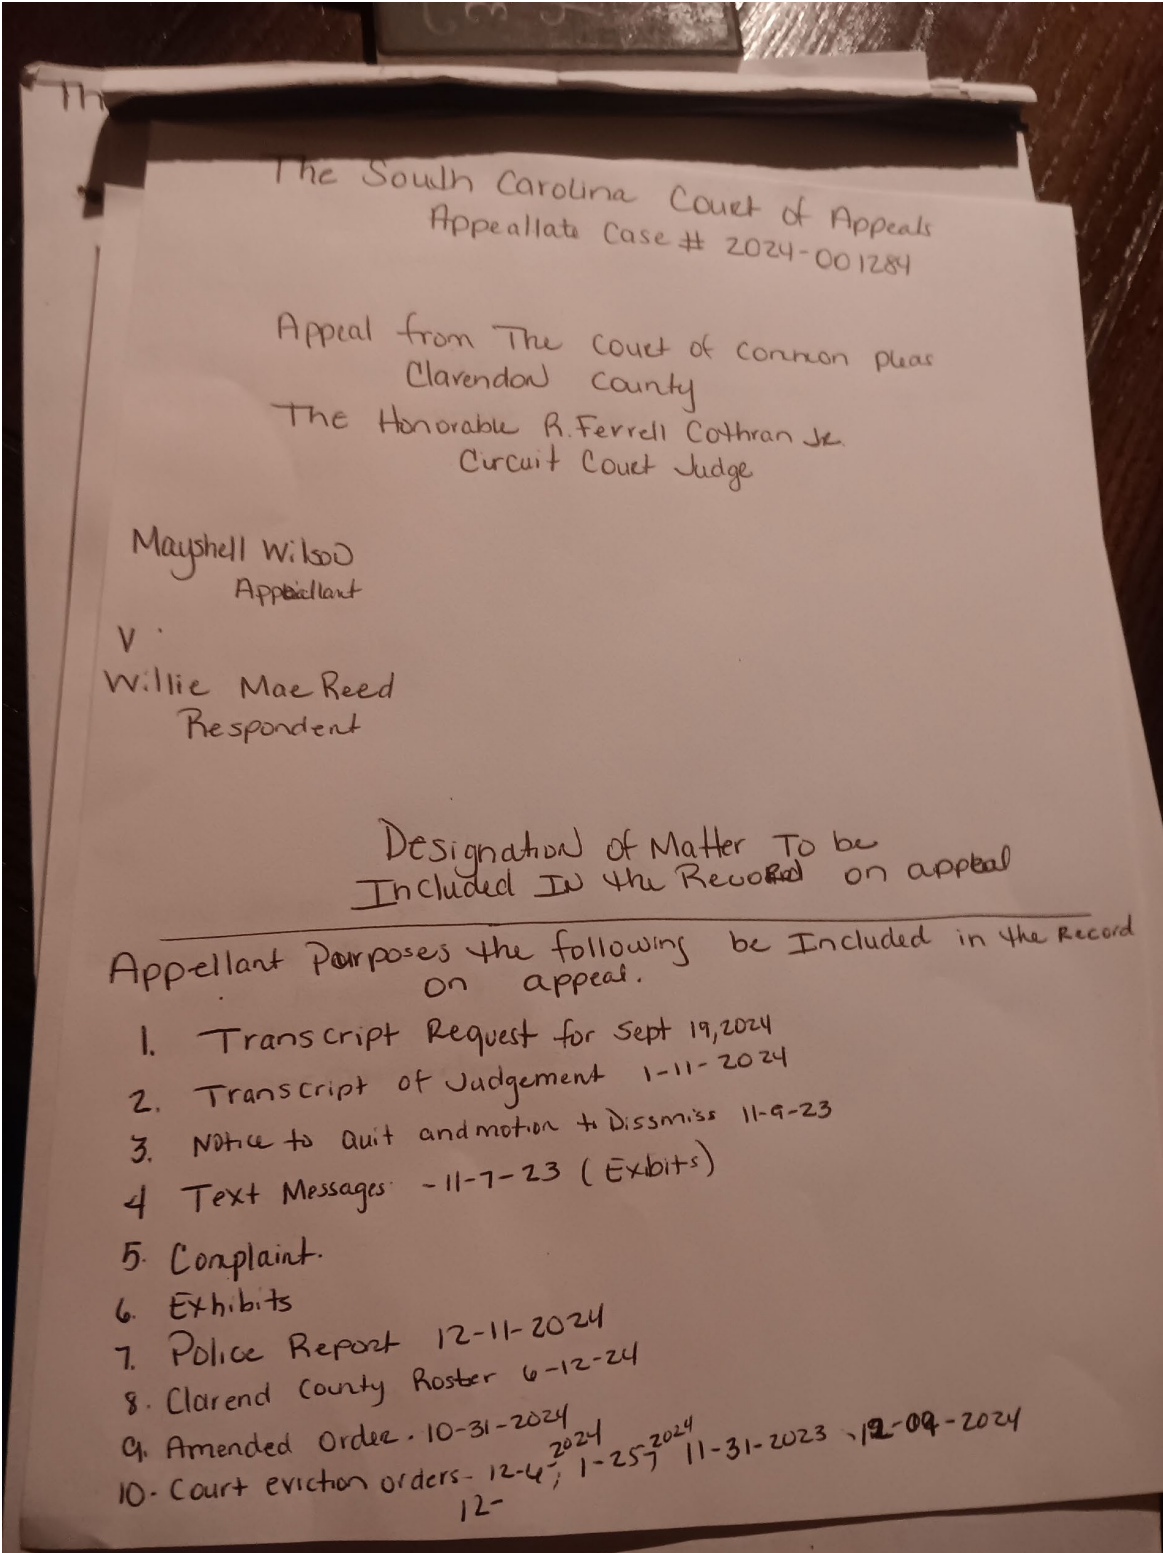 Th
The South Carolina Court of Appeals
Appeallate Case # 2024-001284
Appeal from The Court of Common pleas
Clarendon County
The Honorable R. Ferrell Cothran Jr.
Circuit Court Judge
Mayshell Wilson
Appeallant
V.
Willie Mae Reed
Respondent
Designation of Matter To be
Included In the Record on appeal
Appellant Purposes the following be Included in the Record
on appeal.
1. Transcript Request for Sept 19, 2024
2. Transcript of Judgement 1-11-2024
3. Notice to Quit and motion to Dissmiss 11-9-23
4 Text Messages - 11-7-23 (Exibits)
5. Complaint.
6. Exhibits
7. Police Report 12-11-2024
8. Clarend County Roster 6-12-24
9. Amended Order. 10-31-2024
10. Court eviction orders - 12-4-2024, 1-25-2024, 11-31-2023, 12-09-2024
12-